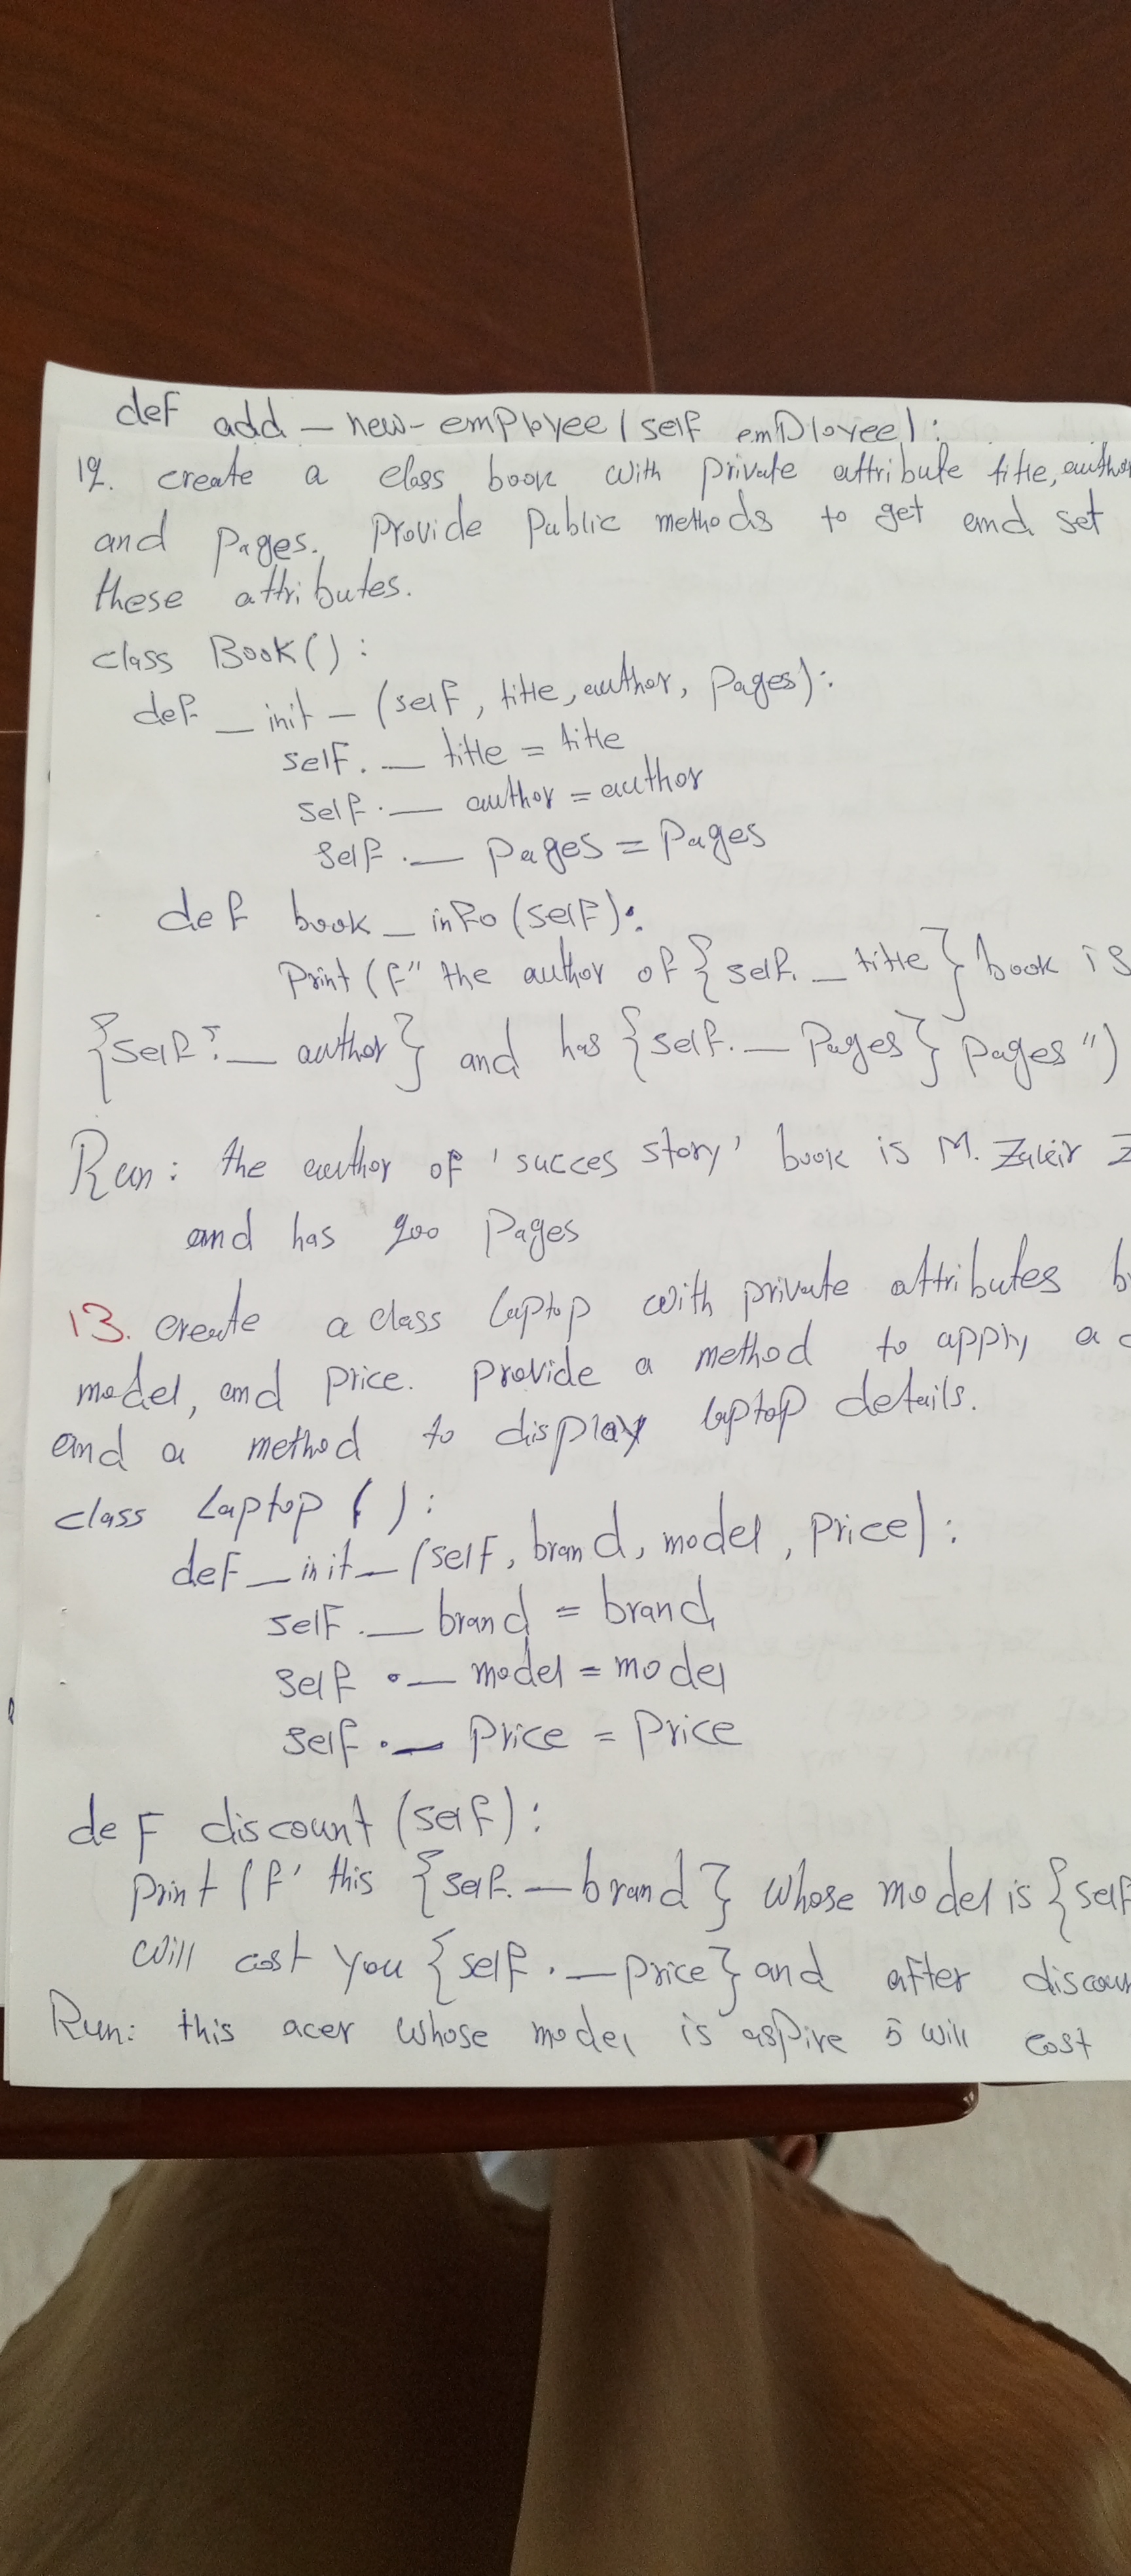 def add_new-employee(self employee):
12. create a class book with private attribute title, author
and pages. Provide Public methods to get and set
these attributes.
class Book():
def __init__(self, title, author, pages):
self.__title = title
self.__author = author
self.__pages = pages
def book_info(self):
print(f"the author of {self.__title} book is
{self.__author} and has {self.__pages} pages")
Run: the author of 'succes story' book is M. Zakir
and has 200 pages
13. create a class laptop with private attributes
model, and price. provide a method to apply a
and a method to display laptop details.
class Laptop():
def __init__(self, brand, model, price):
self.__brand = brand
self.__model = model
self.__price = price
def discount(self):
print(f'this {self.__brand} whose model is {self
will cost you {self.__price} and after
Run: this acer whose model is aspire 5 will cost